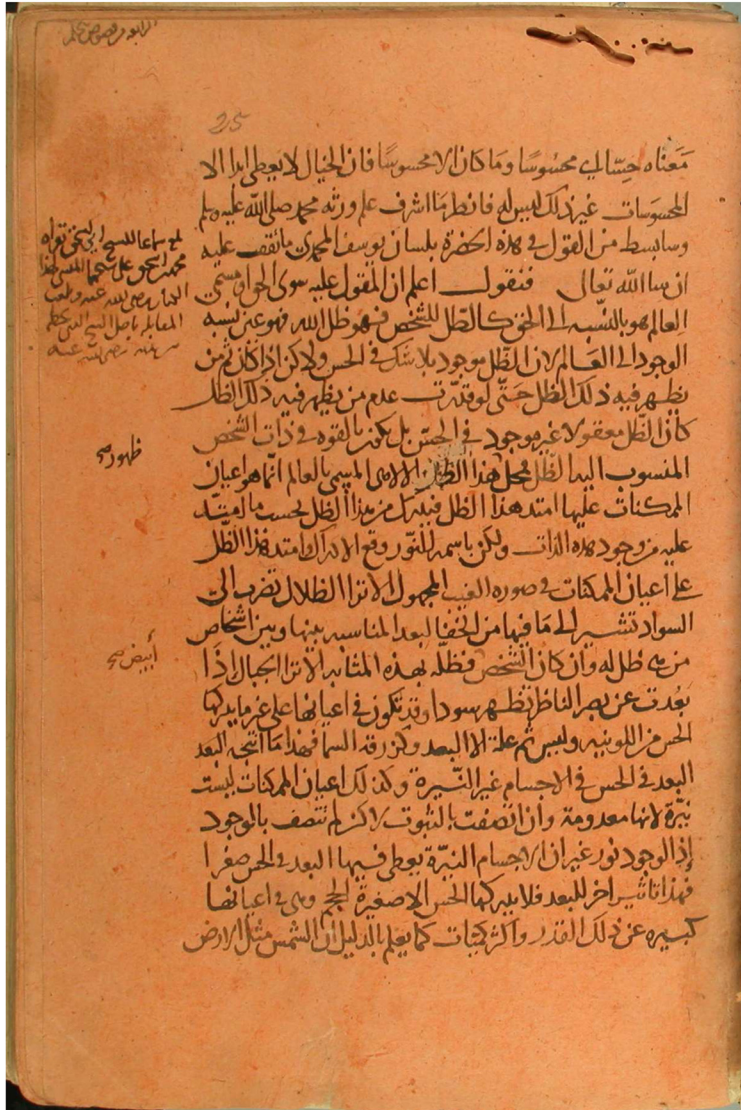 الرابعة من فصوص الحكم
25
معناه حسا اي محسوسا وما كان الا محسوسا فان الخيال لا يعطي ابدا الا
المحسوسات غير ذلك ليس له فانظر ما اشرف علم ورثه محمد صلى الله عليه وسلم
وسابسط من القول في هذه الحضرة بلسان يوسف المحمدي ما تقف عليه
ان شا الله تعالى فنقول اعلم ان المقول عليه سوى الحق او مسمى
العالم هو بالنسبه الى الحق كالظل للشخص فهو ظل الله فهو عين نسبه
الوجود الى العالم لان الظل موجود بلا شك في الحس ولاكن اذا كان ثم من
يظهر فيه ذلك الظل حتى لو قدرت عدم من يظهر فيه ذلك الظل
كان الظل معقولا غير موجود في الحس بل يكون بالقوه في ذات الشخص
المنسوب اليه الظل فمحل هذا الظل الالاهي المسمى بالعالم انما هو اعيان
الممكنات عليها امتد هذا الظل فيدرك من هذا الظل بحسب ما امتد
عليه من وجود هذه الذات ولكن باسمه النور وقع الادراك وامتد هذا الظل
على اعيان الممكنات في صوره الغيب المجهول الا ترا الظلال تضرب الى
السواد تشير الى ما فيها من الخفا لبعد المناسبه بينها وبين اشخاص
من هي ظل له وان كان الشخص فظله بهذه المثابه الا ترا الجبال اذا
بعدت عن بصر الناظر تظهر سودا وقد تكون في اعيانها على غير ما يدركها
الحس من اللونيه وليس ثم علة الا البعد وكزرقه السما فهذا ما انتجه البعد
البعد في الحس في الاجسام غير النيرة وكذلك اعيان الممكنات ليست
نيرة لانها معدومة وان اتصفت بالثبوت لاكن لم تتصف بالوجود
إذ الوجود نور غير ان الاجسام النيرة يعطي فيها البعد في الحس صغرا
فهذا تاثير اخر للبعد فلا يدركها الحس الا صغيرة الحجم وهي في اعيانها
كبيره عن ذلك القدر واكثر كميات كما يعلم بالدليل ان الشمس مثل الارض
ظهور صح
أبيض صح